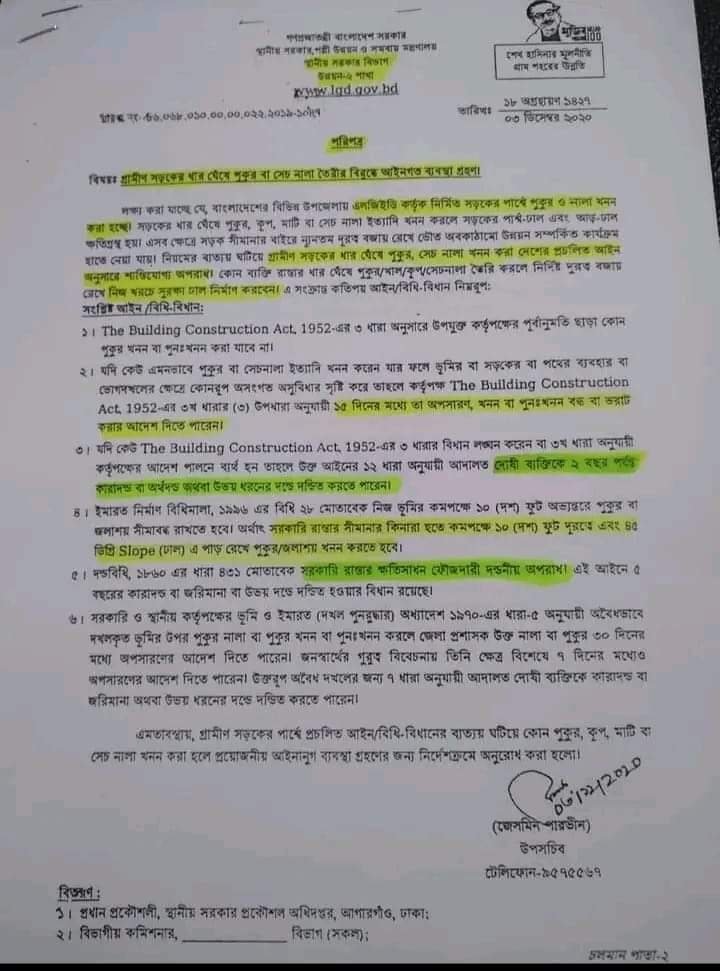 গণপ্রজাতন্ত্রী বাংলাদেশ সরকার
স্থানীয় সরকার, পল্লী উন্নয়ন ও সমবায় মন্ত্রণালয়
স্থানীয় সরকার বিভাগ
উন্নয়ন-২ শাখা
www.lgd.gov.bd
মুজিব 100
শেখ হাসিনার মূলনীতি
গ্রাম শহরের উন্নতি
স্মারক নং-৪৬.০৬৮.০১০.০০.০০.০২২.২০১৯-
তারিখঃ ১৮ অগ্রহায়ণ ১৪২৭
০৩ ডিসেম্বর ২০২০
পরিপত্র
বিষয়ঃ গ্রামীণ সড়কের ধার ঘেঁষে পুকুর বা সেচ নালা তৈরীর বিরুদ্ধে আইনগত ব্যবস্থা গ্রহণ।
লক্ষ্য করা যাচ্ছে যে, বাংলাদেশের বিভিন্ন উপজেলায় এলজিইডি কর্তৃক নির্মিত সড়কের পার্শ্বে পুকুর ও নালা খনন
করা হচ্ছে। সড়কের ধার ঘেঁষে পুকুর, কূপ, মাটি বা সেচ নালা ইত্যাদি খনন করলে সড়কের পার্শ্ব-ঢাল এবং আড়-ঢাল
ক্ষতিগ্রস্থ হয়। এসব ক্ষেত্রে সড়ক সীমানার বাইরে ন্যূনতম দূরত্ব বজায় রেখে ভৌত অবকাঠামো উন্নয়ন সম্পর্কিত কার্যক্রম
হাতে নেয়া যায়। নিয়মের ব্যত্যয় ঘটিয়ে গ্রামীণ সড়কের ধার ঘেঁষে পুকুর, সেচ নালা খনন করা দেশের প্রচলিত আইন
অনুসারে শাস্তিযোগ্য অপরাধ। কোন ব্যক্তি রাস্তার ধার ঘেঁষে পুকুর/খাল/কূপ/সেচনালা তৈরি করলে নির্দিষ্ট দূরত্ব বজায়
রেখে নিজ খরচে সুরক্ষা ঢাল নির্মাণ করবেন। এ সংক্রান্ত কতিপয় আইন/বিধি-বিধান নিম্নরূপ:
সংশ্লিষ্ট আইন /বিধি-বিধান:
১। The Building Construction Act, 1952-এর ৩ ধারা অনুসারে উপযুক্ত কর্তৃপক্ষের পূর্বানুমতি ছাড়া কোন
পুকুর খনন বা পুনঃখনন করা যাবে না।
২। যদি কেউ এমনভাবে পুকুর বা সেচনালা ইত্যাদি খনন করেন যার ফলে ভূমির বা সড়কের বা পথের ব্যবহার বা
ভোগদখলের ক্ষেত্রে কোনরূপ অসংগত অসুবিধার সৃষ্টি করে তাহলে কর্তৃপক্ষ The Building Construction
Act, 1952-এর ৩খ ধারার (৩) উপধারা অনুযায়ী ১৫ দিনের মধ্যে তা অপসারণ, খনন বা পুনঃখনন বন্ধ বা ভরাট
করার আদেশ দিতে পারেন।
৩। যদি কেউ The Building Construction Act, 1952-এর ৩ ধারার বিধান লঙ্ঘন করেন বা ৩খ ধারা অনুযায়ী
কর্তৃপক্ষের আদেশ পালনে ব্যর্থ হন তাহলে উক্ত আইনের ১২ ধারা অনুযায়ী আদালত দোষী ব্যক্তিকে ২ বছর পর্যন্ত
কারাদন্ড বা অর্থদন্ড অথবা উভয় ধরনের দন্ডে দন্ডিত করতে পারেন।
৪। ইমারত নির্মাণ বিধিমালা, ১৯৯৬ এর বিধি ২৮ মোতাবেক নিজ ভূমির কমপক্ষে ১০ (দশ) ফুট অভ্যন্তরে পুকুর বা
জলাশয় সীমাবদ্ধ রাখতে হবে। অর্থাৎ সরকারি রাস্তার সীমানার কিনারা হতে কমপক্ষে ১০ (দশ) ফুট দূরত্বে এবং ৪৫
ডিগ্রি Slope (ঢাল) এ পাড় রেখে পুকুর/জলাশয় খনন করতে হবে।
৫। দন্ডবিধি, ১৮৬০ এর ধারা ৪৩১ মোতাবেক সরকারি রাস্তার ক্ষতিসাধন ফৌজদারী দন্ডনীয় অপরাধ। এই আইনে ৫
বছরের কারাদন্ড বা জরিমানা বা উভয় দন্ডে দন্ডিত হওয়ার বিধান রয়েছে।
৬। সরকারি ও স্থানীয় কর্তৃপক্ষের ভূমি ও ইমারত (দখল পুনরুদ্ধার) অধ্যাদেশ ১৯৭০-এর ধারা-৫ অনুযায়ী অবৈধভাবে
দখলকৃত ভূমির উপর পুকুর নালা বা পুকুর খনন বা পুনঃখনন করলে জেলা প্রশাসক উক্ত নালা বা পুকুর ৩০ দিনের
মধ্যে অপসারণের আদেশ দিতে পারেন। জনস্বার্থের গুরুত্ব বিবেচনায় তিনি ক্ষেত্র বিশেষে ৭ দিনের মধ্যেও
অপসারণের আদেশ দিতে পারেন। উক্তরূপ অবৈধ দখলের জন্য ৭ ধারা অনুযায়ী আদালত দোষী ব্যক্তিকে কারাদন্ড বা
জরিমানা অথবা উভয় ধরনের দন্ডে দন্ডিত করতে পারেন।
এমতাবস্থায়, গ্রামীণ সড়কের পার্শ্বে প্রচলিত আইন/বিধি-বিধানের ব্যত্যয় ঘটিয়ে কোন পুকুর, কূপ, মাটি বা
সেচ নালা খনন করা হলে প্রয়োজনীয় আইনানুগ ব্যবস্থা গ্রহণের জন্য নির্দেশক্রমে অনুরোধ করা হলো।
০৬/১২/২০২০
(জেসমিন পারভীন)
উপসচিব
টেলিফোন-৯৫৭৫৫৬৭
বিতরণ :
১। প্রধান প্রকৌশলী, স্থানীয় সরকার প্রকৌশল অধিদপ্তর, আগারগাঁও, ঢাকা;
২। বিভাগীয় কমিশনার, ____________ বিভাগ (সকল);
চলমান পাতা-২